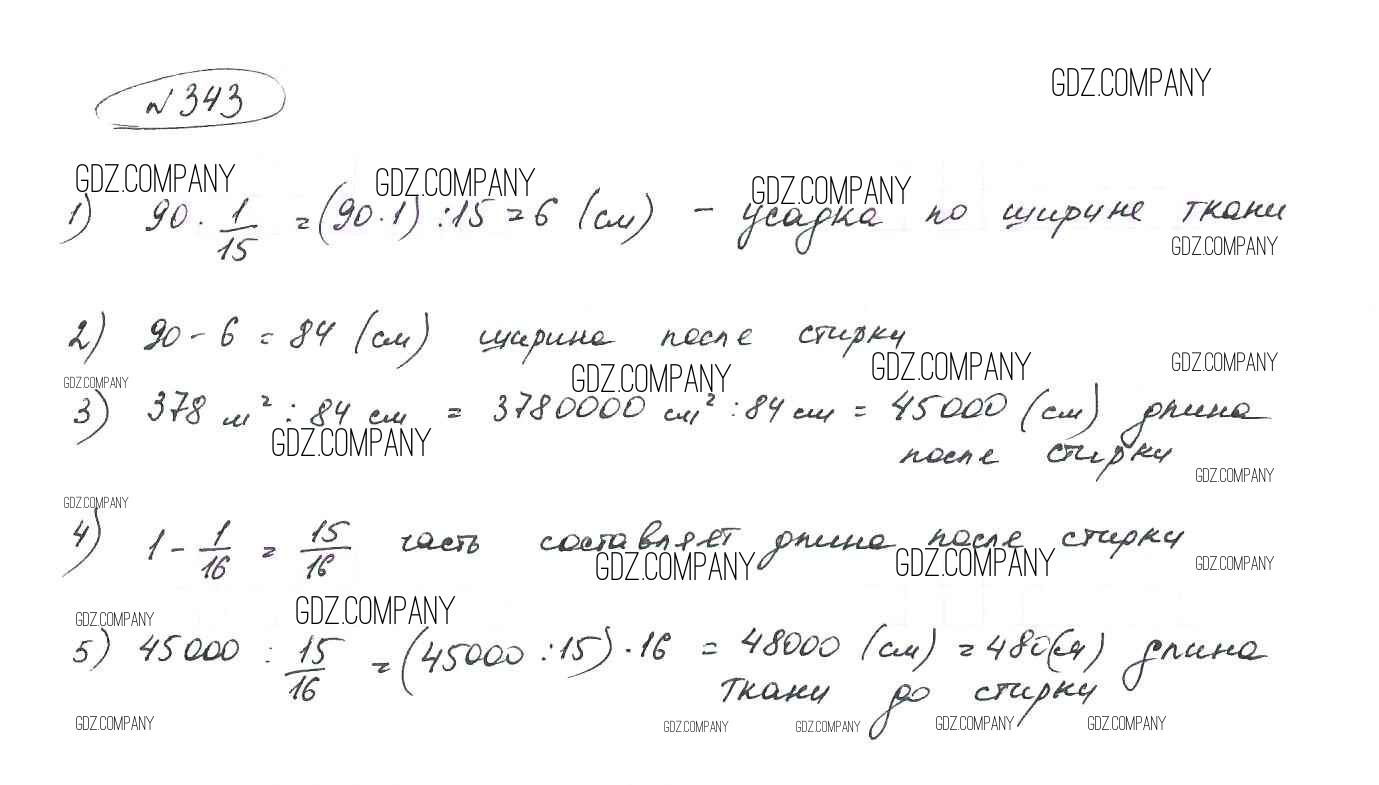 № 343
GDZ.COMPANY
GDZ.COMPANY GDZ.COMPANY GDZ.COMPANY
1) 90 · 1/15 = (90·1) : 15 = 6 (см) – усадка по ширине ткани
GDZ.COMPANY
2) 90 – 6 = 84 (см) ширина после стирки
GDZ.COMPANY GDZ.COMPANY GDZ.COMPANY GDZ.COMPANY
3) 378 м² : 84 см = 3780000 см² : 84 см = 45000 (см) длина
GDZ.COMPANY
после стирки
GDZ.COMPANY
GDZ.COMPANY
4) 1 – 1/16 = 15/16 часть составляет длина после стирки
GDZ.COMPANY GDZ.COMPANY GDZ.COMPANY
GDZ.COMPANY GDZ.COMPANY
5) 45000 : 15/16 = (45000 : 15) · 16 = 48000 (см) = 480(м) длина
ткани до стирки
GDZ.COMPANY GDZ.COMPANY GDZ.COMPANY GDZ.COMPANY GDZ.COMPANY